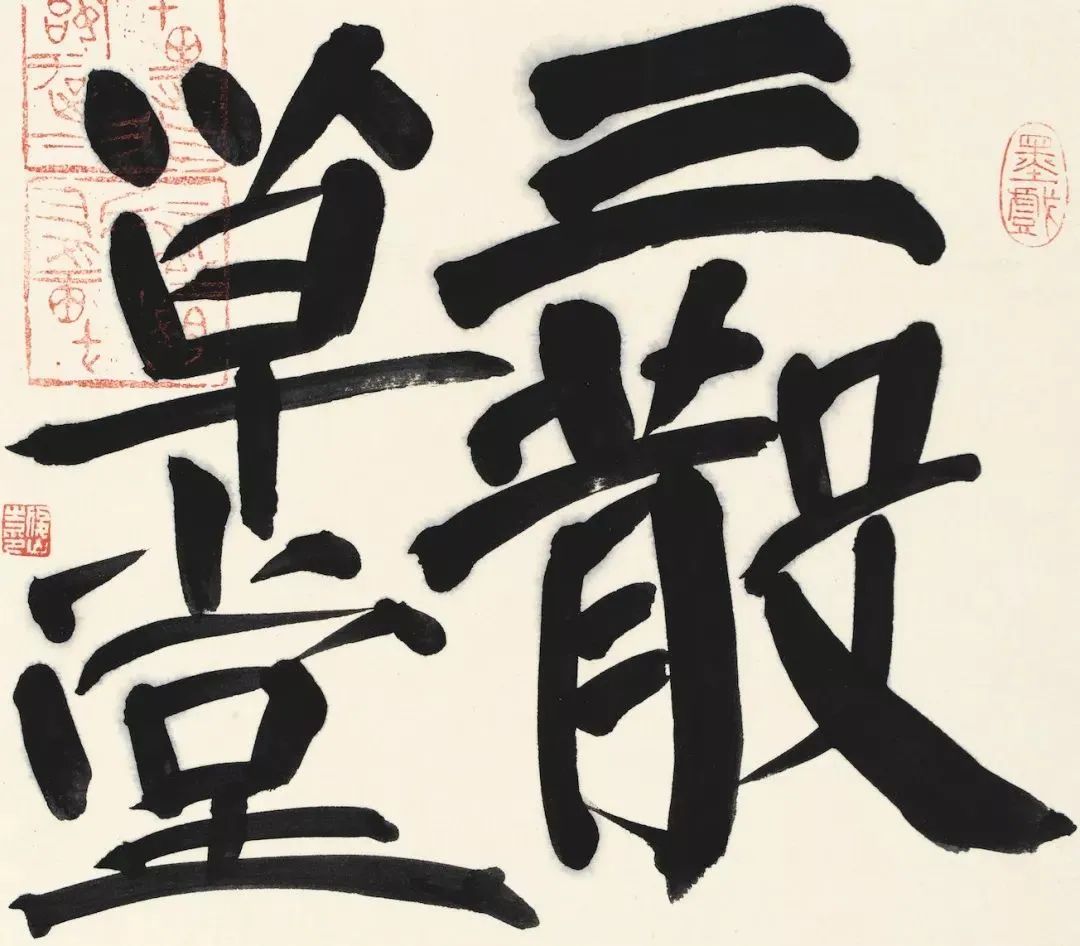 三散
草堂
墨戲